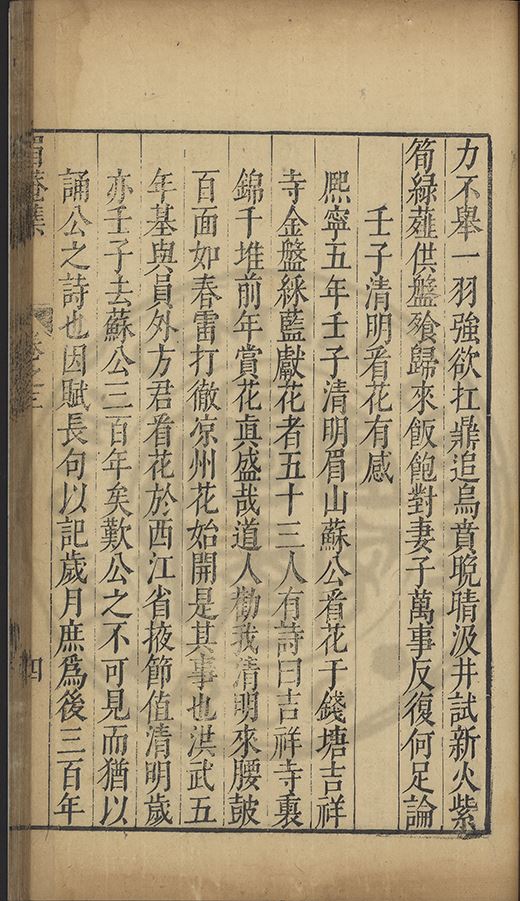 力不舉一羽強欲扛鼎追烏賁晩晴汲井試新火紫
筍綠薤供盤飱歸來飯飽對妻子萬事反復何足論
壬子清明看花有感
熈寧五年壬子清明眉山蘇公看花于錢塘吉祥
寺金盤綵藍獻花者五十三人有詩曰吉祥寺裏
錦千堆前年賞花真盛哉道人勸我清明來腰皷
百面如春雷打徹凉州花始開是其事也洪武五
年基與員外方君看花於西江省掖節值清明歲
亦壬子去蘇公三百年矣歎公之不可見而猶以
誦公之詩也因賦長句以記歲月庶爲後三百年
眉菴集
卷之三
四